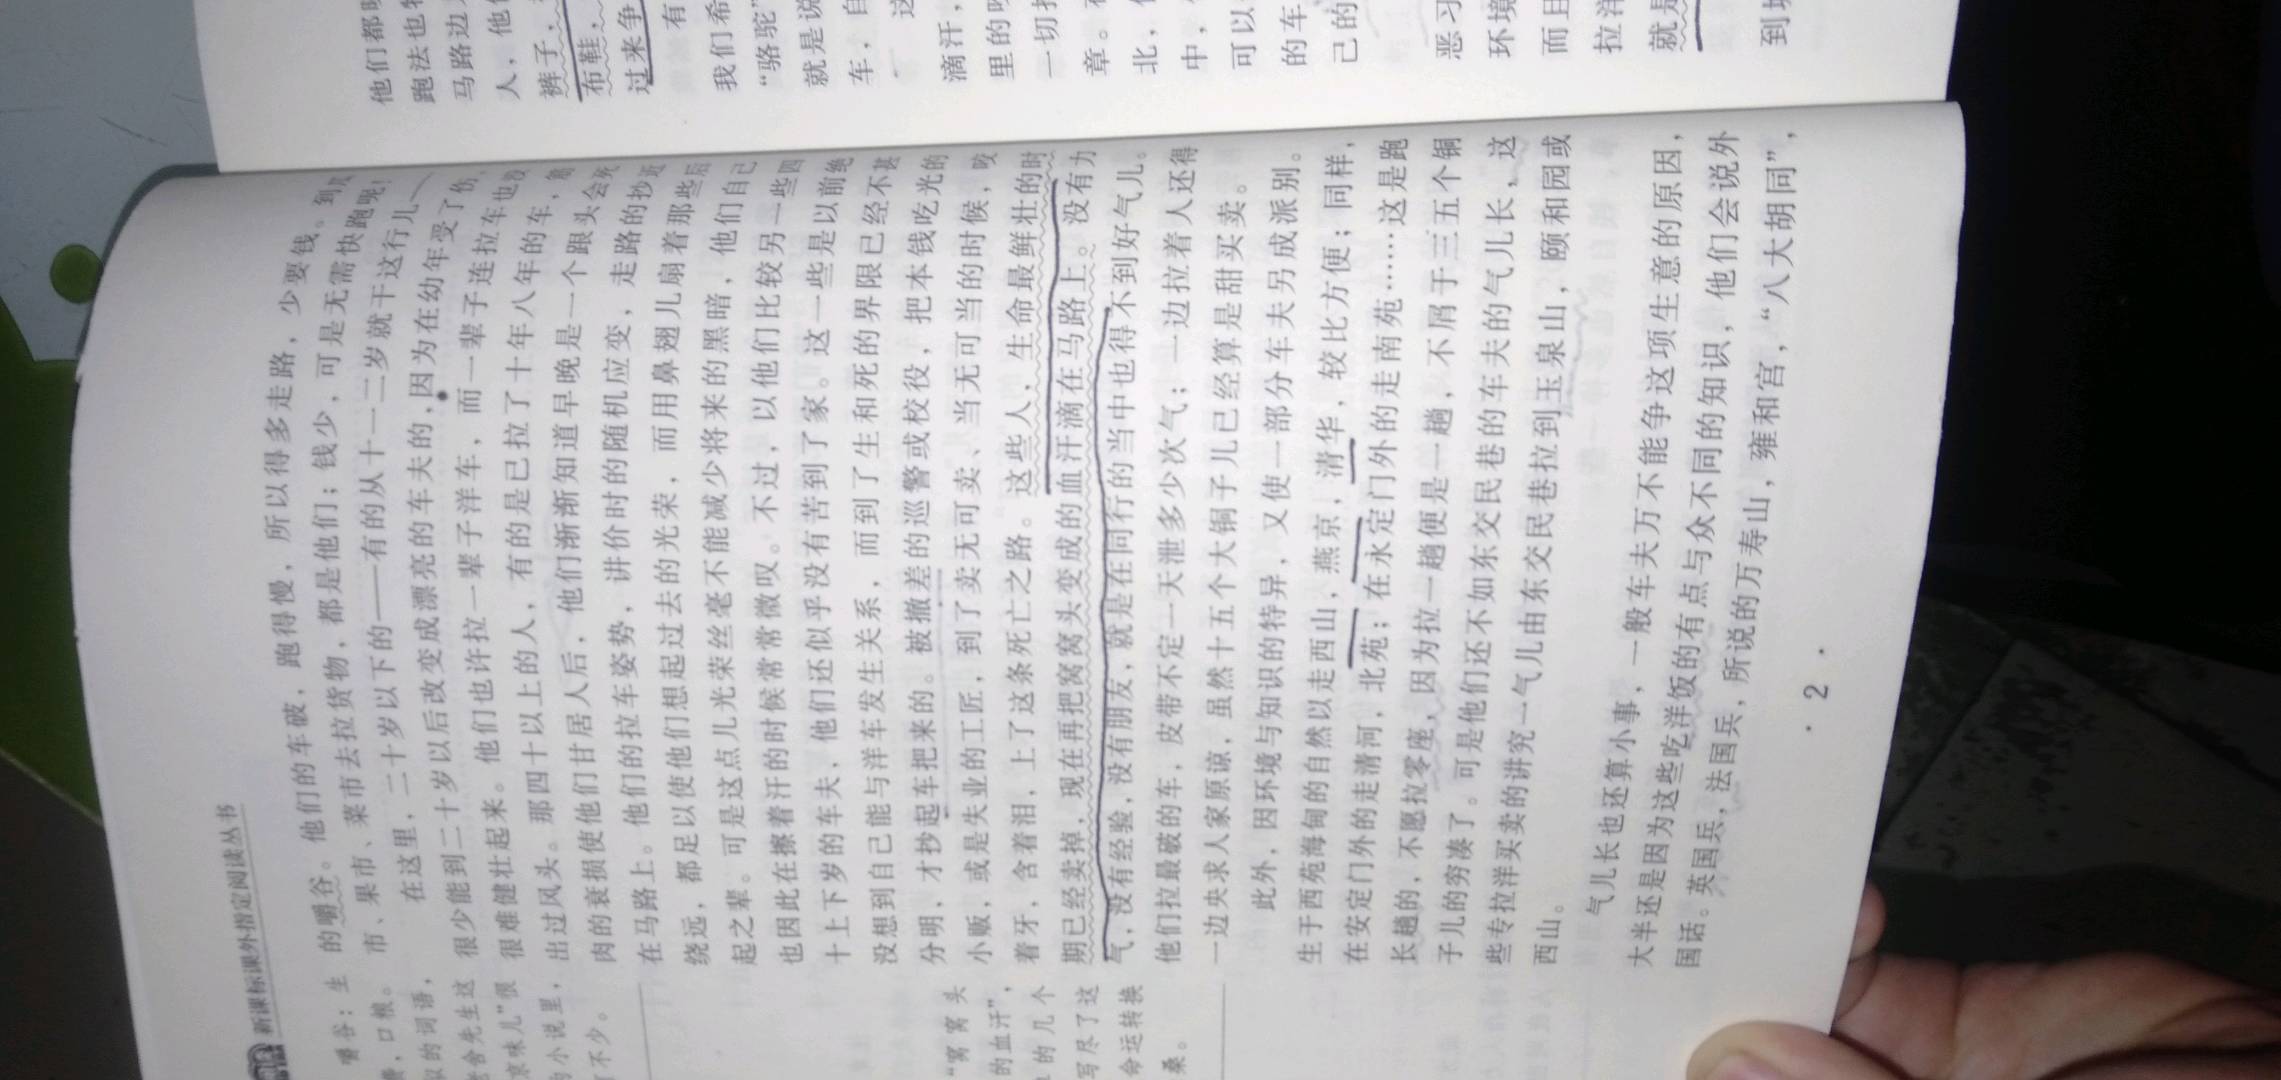 新课标课外指定阅读丛书
的嚼谷。他们的车破，跑得慢，所以得多走路，少要钱。到
市、果市、菜市去拉货物，都是他们；钱少，可是无需快跑呢！
在这里，二十岁以下的——有的从十一二岁就干这行儿
很少能到二十岁以后改变成漂亮的车夫的，因为在幼年受了伤，
很难健壮起来。他们也许拉一辈子洋车，而一辈子连拉车也
出过风头。那四十以上的人，有的是已拉了十年八年的车，
肉的衰损使他们甘居人后，他们渐渐知道早晚是一个跟头会死
在马路上。他们的拉车姿势，讲价时的随机应变，走路的抄近
绕远，都足以使他们想起过去的光荣，而用鼻翅儿扇着那些后
起之辈。可是这点儿光荣丝毫不能减少将来的黑暗，他们自己
也因此在擦着汗的时候常常微叹。不过，以他们比较另一些四
十上下岁的车夫，他们还似乎没有苦到了家。这一些是以前绝
没想到自己能与洋车发生关系，而到了生和死的界限已经不甚
分明、才抄起车把来的。被撤差的巡警或校役，把本钱吃光的
小贩，或是失业的工匠，到了卖无可卖、当无可当的时候，咬
着牙，含着泪，上了这条死亡之路。这些人，生命最鲜壮的时
期已经卖掉，现在再把窝窝头变成的血汗滴在马路上。没有力
气，没有经验，没有朋友，就是在同行的当中也得不到好气儿。
他们拉最破的车，皮带不定一天泄多少次气；一边拉着人还得
一边央求人家原谅，虽然十五个大铜子儿已经算是甜买卖。
此外，因环境与知识的特异，又使一部分车夫另成派别。
生于西苑海甸的自然以走西山，燕京，清华，较比方便；同样，
在安定门外的走清河，北苑；在永定门外的走南苑……这是跑
长趟的，不愿拉零座，因为拉一趟便是一趟，不屑于三五个铜
子儿的穷凑了。可是他们还不如东交民巷的车夫的气儿长，这
些专拉洋买卖的讲究一气儿由东交民巷拉到玉泉山，颐和园或
西山。
气儿长也还算小事，一般车夫万不能争这项生意的原因，
大半还是因为这些吃洋饭的有点与众不同的知识，他们会说外
国话。英国兵，法国兵，所说的万寿山，雍和宫，“八大胡同”，
·2·
嚼谷：生
，口粮。
的词语，
舍先生这
京味儿”很
小说里，
不少。
“窝窝头
的血汗”，
的几个
写尽了这
命运转换
桑。
他们都
跑法也
马路边
人，他
裤子，
布鞋，
过来争
有
我们希
“骆驼”
就是说
车，自
这
滴汗，
里的
一切
章。
北，
中，
可以
的车
己的
恶习
环境
而且
拉洋
就是
到